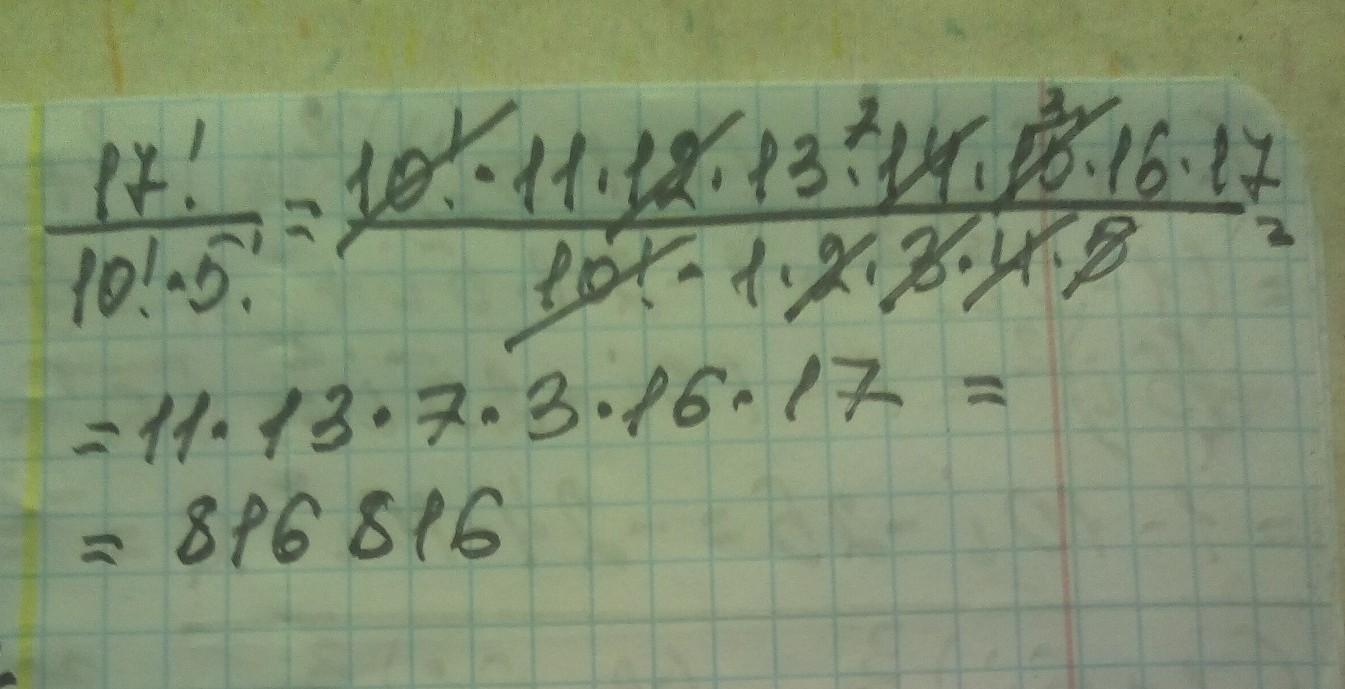 17! / 10! · 5! = 10! · 11 · 12 · 13 · 14 7 · 15 3 · 16 · 17 / 10! · 1 · 2 · 3 · 4 · 5 =
= 11 · 13 · 7 · 3 · 16 · 17 =
= 816 816